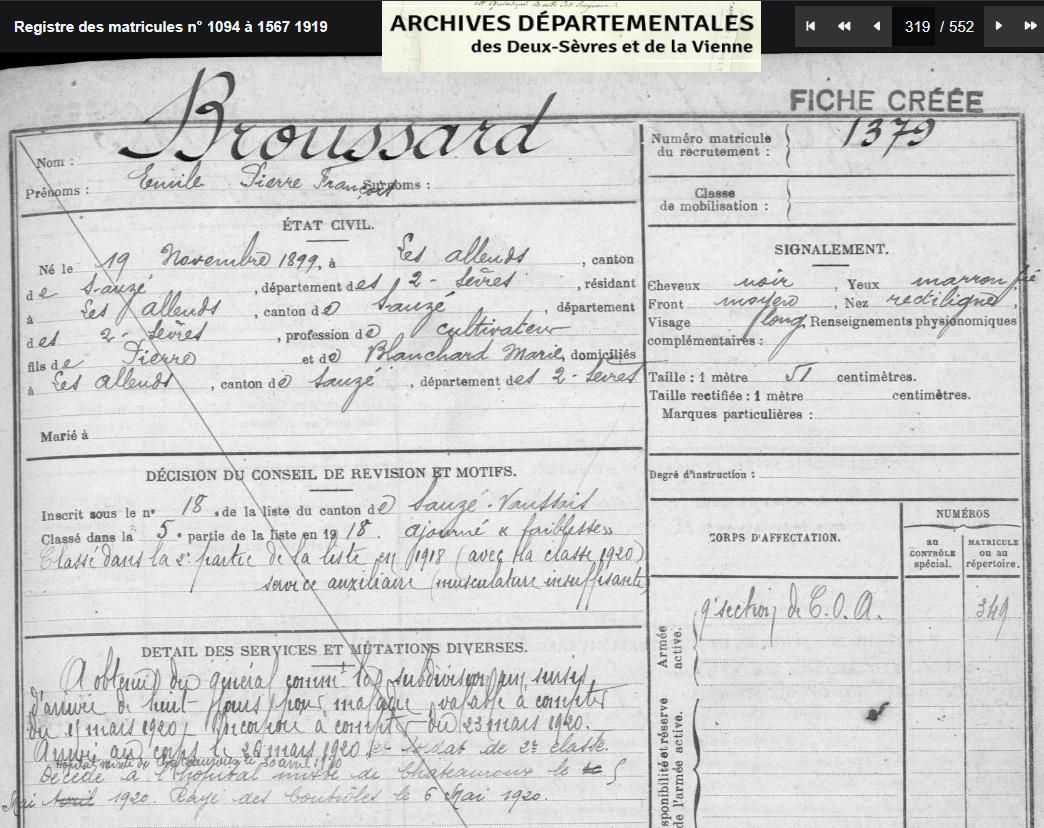 Registre des matricules n° 1094 à 1567 1919
ARCHIVES DÉPARTEMENTALES
des Deux-Sèvres et de la Vienne
319 / 552
FICHE CRÉÉE
Nom : Broussard
Prénoms : Emile Pierre François Surnoms :
Numéro matricule du recrutement : 1379
Classe de mobilisation :
ÉTAT CIVIL.
Né le 19 Novembre 1899, à Les allends, canton
de Sauzé, département des 2-Sèvres, résidant
à Les allends, canton de Sauzé, département
des 2-Sèvres, profession de cultivateur
fils de Pierre et de Blanchard Marie, domiciliés
à Les allends, canton de Sauzé, département des 2-Sèvres
Marié à
SIGNALEMENT.
Cheveux noir, Yeux marron
Front moyen, Nez rectiligne,
Visage long, Renseignements physionomiques
complémentaires :
Taille : 1 mètre 51 centimètres.
Taille rectifiée : 1 mètre centimètres.
Marques particulières :
Degré d'instruction :
DÉCISION DU CONSEIL DE REVISION ET MOTIFS.
Inscrit sous le n° 18 de la liste du canton de Sauzé-Vaussais
Classé dans la 5e partie de la liste en 1918. ajourné « faiblesse »
Classé dans la 2e partie de la liste en 1918 (avec la classe 1920)
service auxiliaire (musculature insuffisante)
CORPS D'AFFECTATION.
NUMÉROS
au CONTRÔLE spécial.
MATRICULE ou au répertoire.
Armée active.
9e section de C.O.A. 349
disponibilité et réserve de l'armée active.
DETAIL DES SERVICES ET MUTATIONS DIVERSES.
A obtenu du général commt la subdivision un sursis
d'arrivée de huit jours pour maladie valable à compter
du 15 mars 1920. Incorporé à compter du 23 mars 1920.
Arrivé au corps le 26 mars 1920 et soldat de 2e classe.
hôpital mixte de Chateauroux le 30 avril 1920
Décédé à l'hôpital mixte de Chateauroux le 5
Mai Avril 1920. Rayé des contrôles le 6 Mai 1920.